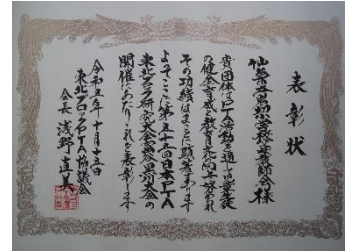 表彰状
仙台市立 父母教師会 様
貴団体はPTA活動を通して児童生徒
の健全育成と教育 され
その功績はまことに顕著であります
よってここに第五十 回日本PTA
東北ブロック研究大会 大会の
開催にあたりこれを表彰します
令和五年十月十 日
東北ブロックPTA協議会
会長 浅野直美